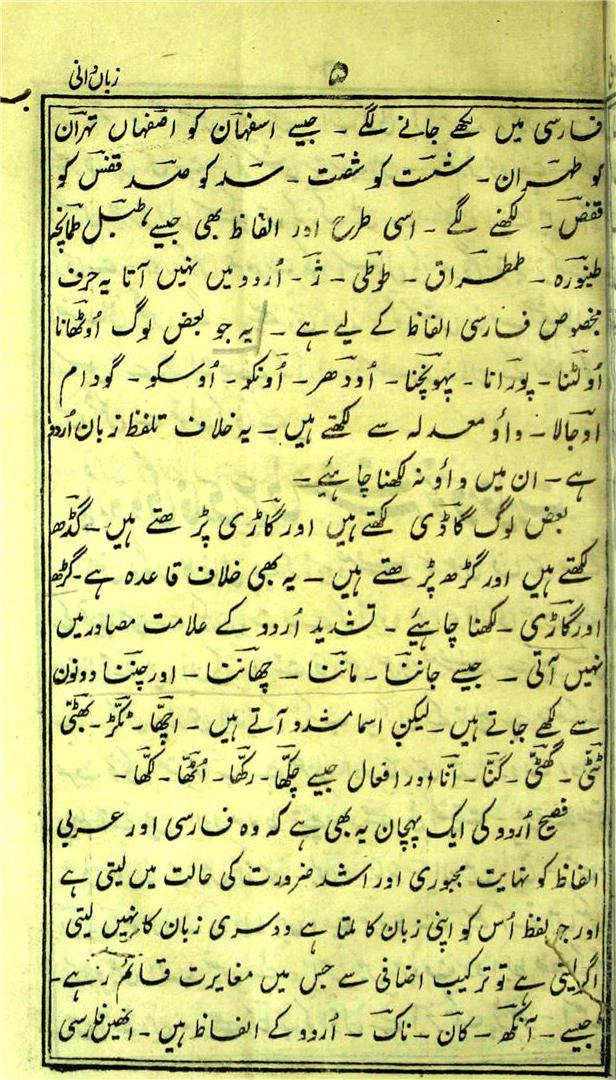 ۵
زبان دانی
فارسی میں لکھے جانے لگے - جیسے اسفہان کو اصفہاں تہران
کو طہران - شست کو شصت - سد کو صد قفس کو
قفص - لکھنے لگے - اسی طرح اور الفاظ بھی جیسے، طبل طمانچہ
طنبورہ - طمطراق - طوطی - ژ - اُردو میں نہیں آتا یہ حرف
مخصوص فارسی الفاظ کے لیے ہے - یہ جو بعض لوگ اُوٹھانا
اُولٹنا - پورانا - پہونچنا - اُودھر - اُونکو - اُوسکو - گودام
اوجالا - واؤ معدلہ سے لکھتے ہیں - یہ خلاف تلفظ زبان اُردو
ہے - ان میں واؤ نہ لکھنا چاہیئے -
بعض لوگ گاڈی لکھتے ہیں اور گاڑی پڑھتے ہیں - گڈھ
لکھتے ہیں اور گڑھ پڑھتے ہیں - یہ بھی خلاف قاعدہ ہے - گڑھ
اور گاڑی - لکھنا چاہیئے - تشدید اُردو کے علامت مصادر میں
نہیں آتی - جیسے جاننا - ماننا - چھاننا - اور چننا دونوں
سے لکھے جاتے ہیں - لیکن اسما مشدد آتے ہیں - اچھّا - ٹکّڑ - بھٹّی
ٹٹّی - گھٹّی - کنّا - انّا اور افعال جیسے چکّھا - رکّھا - اُٹّھا - لکّھا -
فصیح اُردو کی ایک پہچان یہ بھی ہے کہ وہ فارسی اور عربی
الفاظ کو نہایت مجبوری اور اشد ضرورت کی حالت میں لیتی ہے
اور جو لفظ اُس کو اپنی زبان کا ملتا ہے دوسری زبان کا نہیں لیتی
اگر لیتی ہے تو ترکیب اضافی سے جس میں مغایرت قائم رہے -
جیسے - آنکھ - کان - ناک - اُردو کے الفاظ ہیں - انھیں فارسی